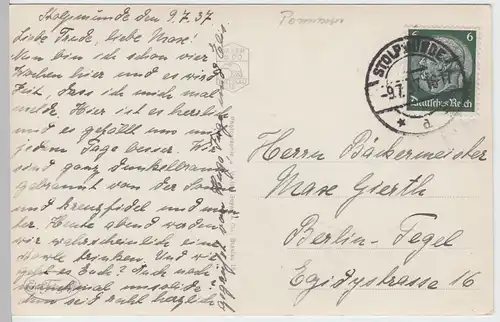 Stolpmünde den 9.7.37
Liebe Trude, liebe Maxe!
Nun bin ich schon vier
Wochen hier und es wird
Zeit, dass ich mich mal
melde. Hier ist es herrlich
und es gefällt uns mit
jedem Tage besser. Wir
sind ganz dunkelbraun
gebrannt von der Sonne
und kreuzfidel und mun
ter. Heute abend werden
wir wahrscheinlich eine
Bowle trinken. Und wie
geht es Euch? Auch noch
manchmal unsolide
dann seid recht herzlich
gegrüßt von
Pommern
STOLPMÜNDE
-9.7.
a
6
Deutsches Reich
Herrn Bäckermeister
Maxe Gierth
Berlin-Tegel
Egidystrasse 16